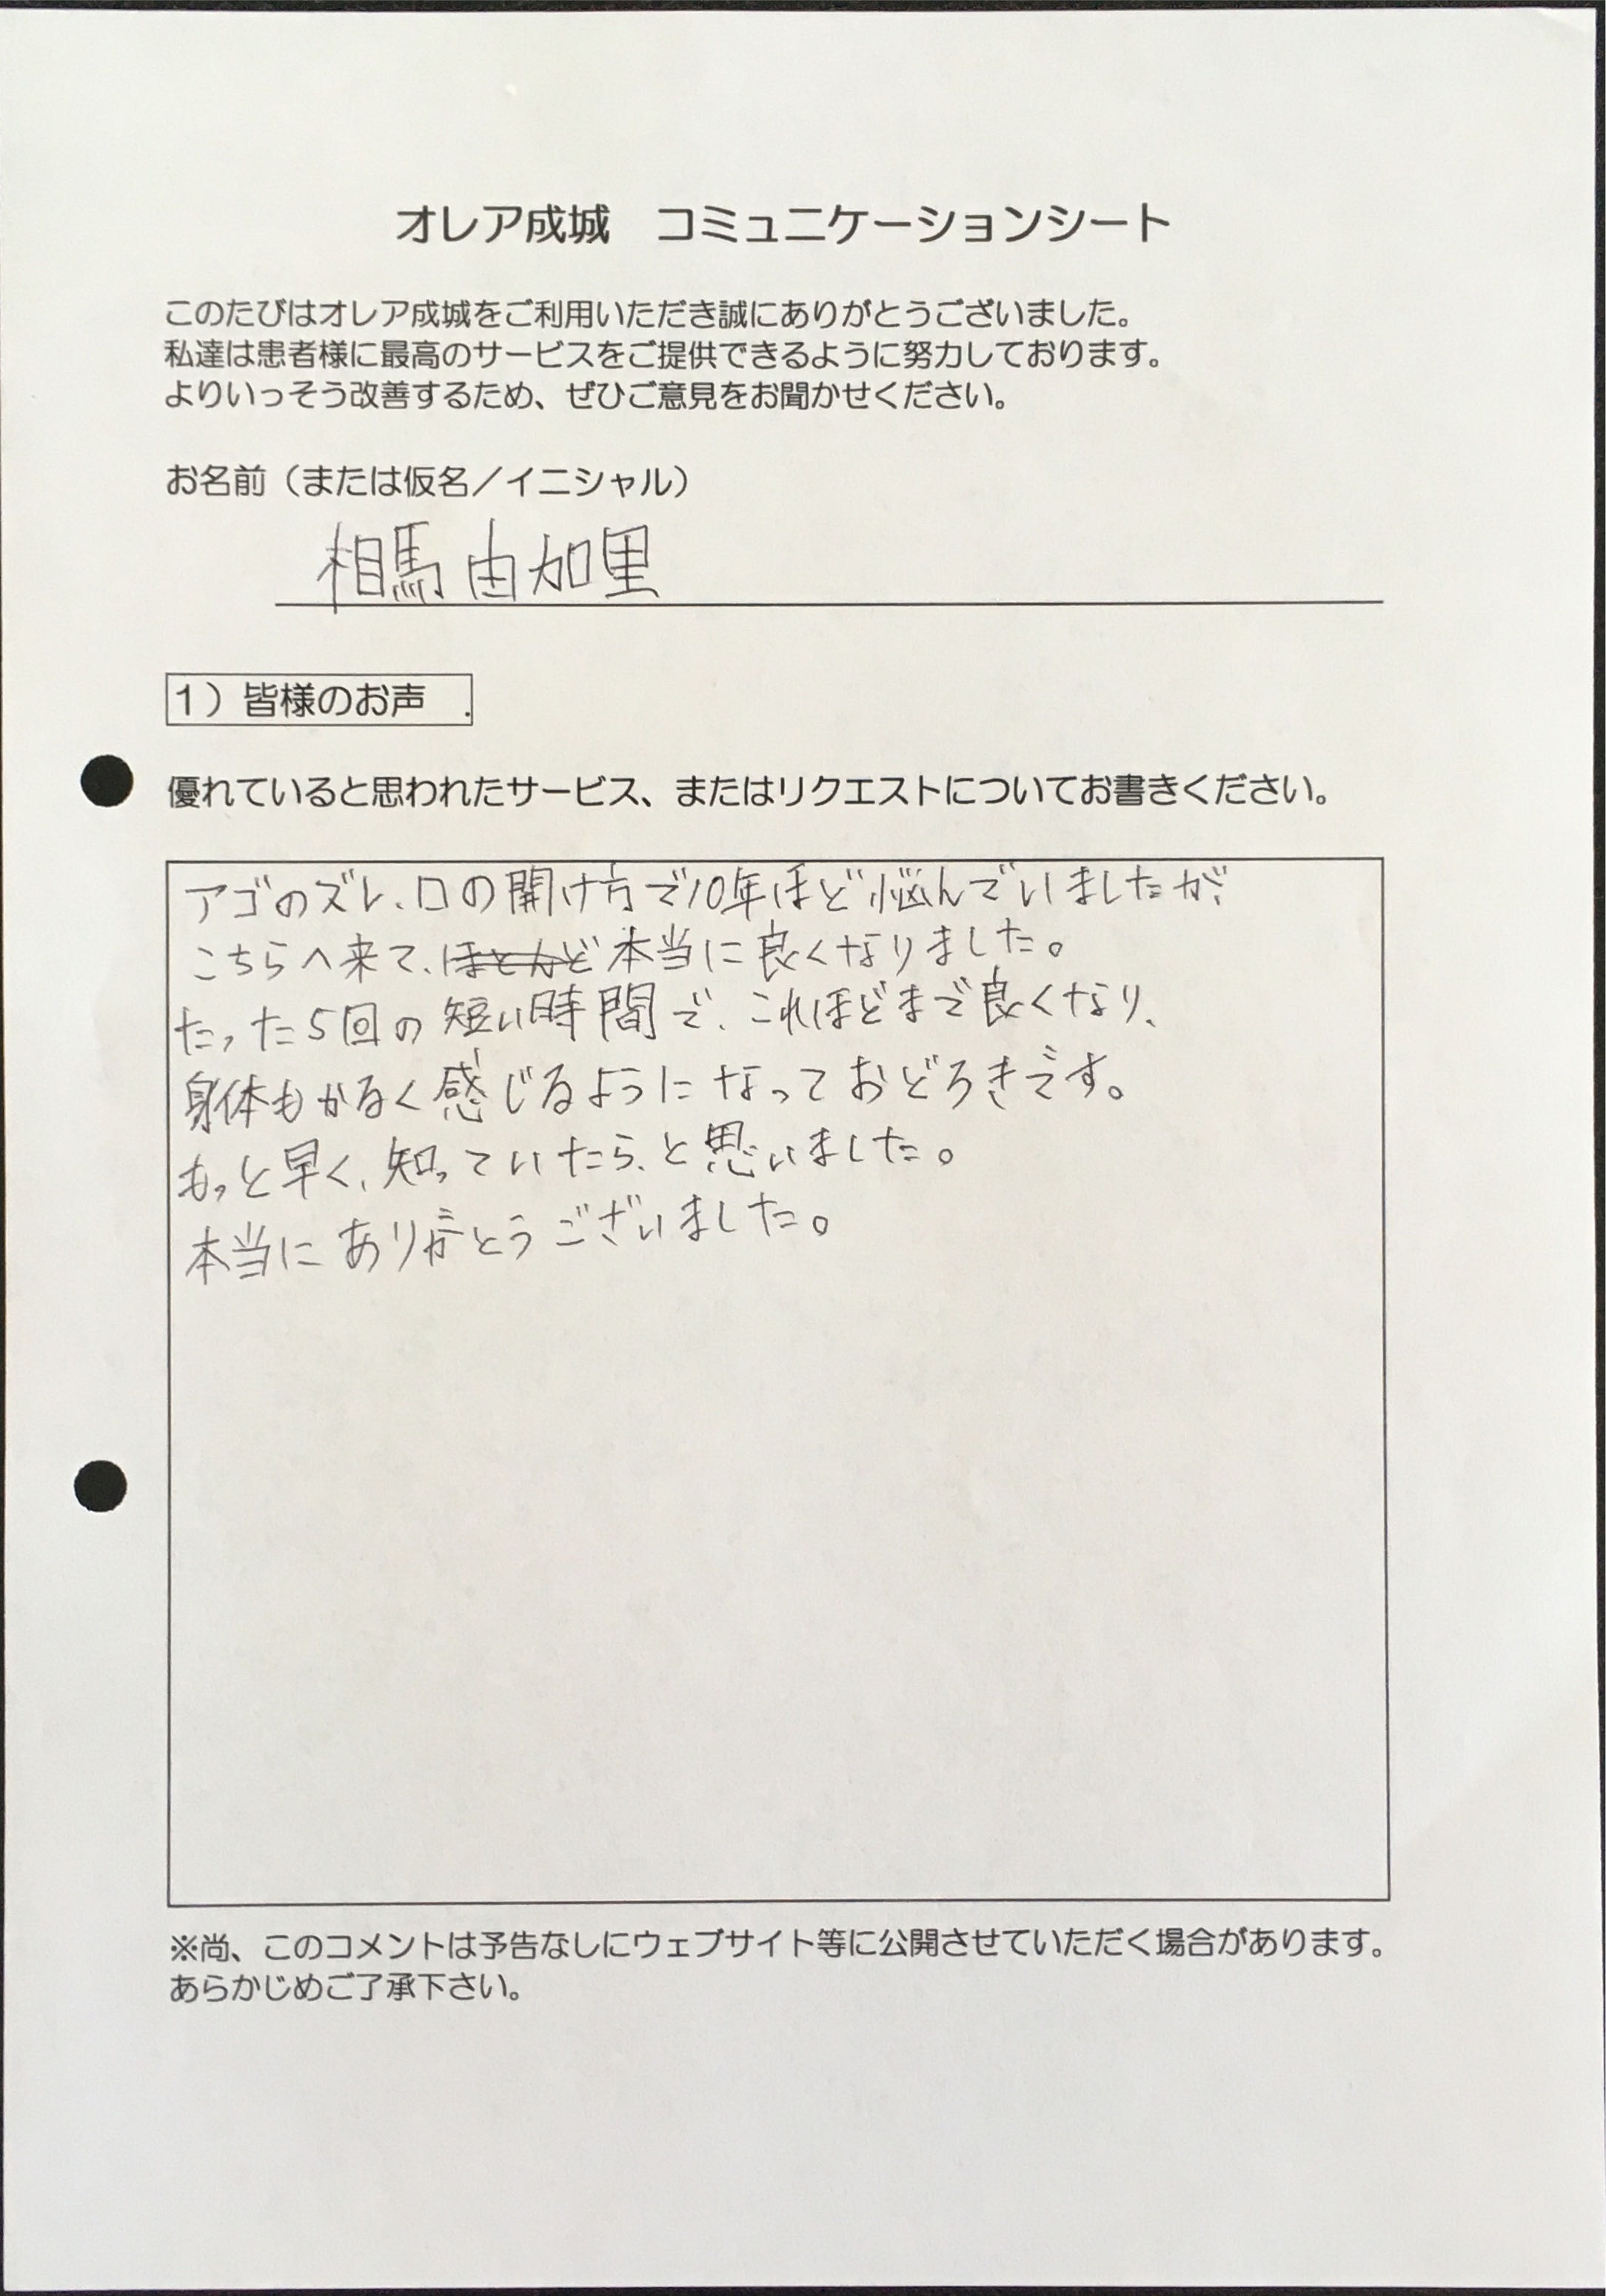 オレア成城　コミュニケーションシート
このたびはオレア成城をご利用いただき誠にありがとうございました。
私達は患者様に最高のサービスをご提供できるように努力しております。
よりいっそう改善するため、ぜひご意見をお聞かせください。
お名前（または仮名／イニシャル）
相馬由加里
1）皆様のお声
優れていると思われたサービス、またはリクエストについてお書きください。
アゴのズレ、口の開け方で10年ほど悩んでいましたが、
こちらへ来て、ほとんど本当に良くなりました。
たった5回の短い時間で、これほどまで良くなり、
身体もかるく感じるようになっておどろきです。
もっと早く、知っていたら、と思いました。
本当にありがとうございました。
※尚、このコメントは予告なしにウェブサイト等に公開させていただく場合があります。
あらかじめご了承下さい。